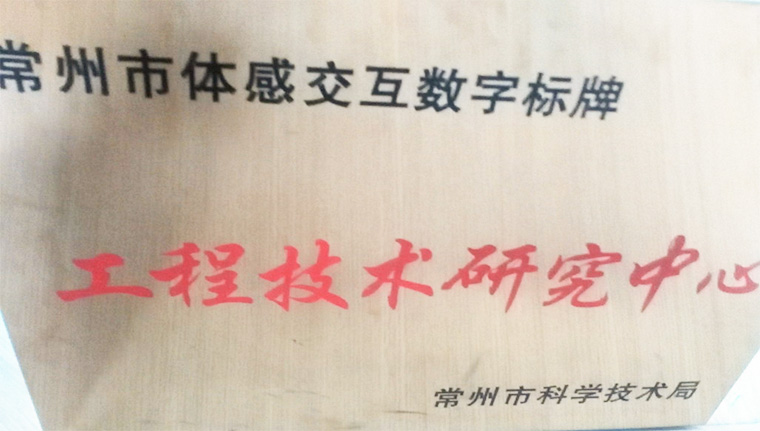 常州市体感交互数字标牌
工程技术研究中心
常州市科学技术局